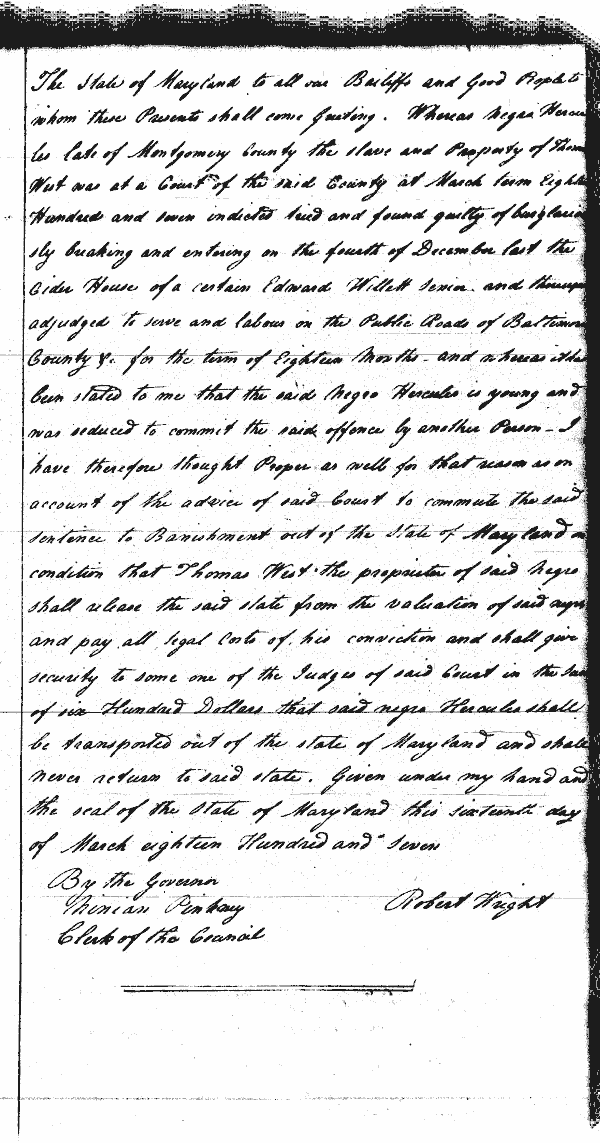 The State of Maryland to all our Bailiffs and Good People to
whom these Presents shall come Greeting. Whereas negro Hercu
les late of Montgomery County the slave and Property of Thomas
West was at a Court of the said County at March term Eighteen
Hundred and seven indicted tried and found guilty of burglariou
sly breaking and entering on the fourth of December last the
Cider House of a certain Edward Willett Senior. and thereupon
adjudged to serve and labour on the Public Roads of Baltimore
County &c. for the term of Eighteen Months - and whereas it has
been stated to me that the said Negro Hercules is young and
was seduced to commit the said offence by another Person - I
have therefore thought Proper as well for that reason as on
account of the advice of said Court to commute the said
sentence to Banishment out of the State of Maryland on
condition that Thomas West the proprietor of said Negro
shall release the said state from the valuation of said negro
and pay all legal Costs of his conviction and shall give
security to some one of the Judges of said Court in the Sum
of six Hundred Dollars that said negro Hercules shall
be transported out of the state of Maryland and shall
never return to said state. Given under my hand and
the seal of the State of Maryland this sixteenth day
of March eighteen Hundred and Seven
By the Governor
Ninian Pinkney Robert Wright
Clerk of the Council